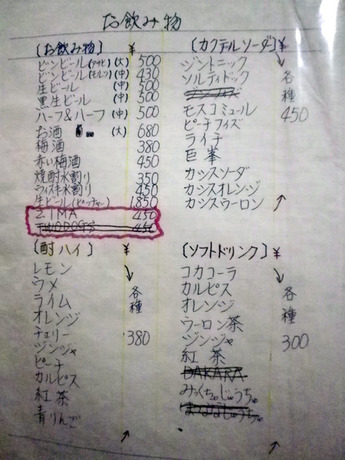 お飲み物
〔お飲み物〕 ¥
ビンビール(アサヒ)(大) 500
ビンビール(モルツ)(中) 430
生ビール (中) 500
黒生ビール (中) 500
ハーフ&ハーフ (中) 500
お酒 (大) 680
梅酒 380
赤い梅酒 450
焼酎水割り 350
ウイスキー水割り 450
生ビール(ピッチャー) 1,850
ZIMA 450
TWO DOGS 450
〔酎ハイ〕 ¥
レモン ↓
ウメ 各
ライム 種
オレンジ
チェリー 380
ジンジャ
ピーチ
カルピス
紅茶
青りんご ↑
〔カクテルソーダ〕 ¥
ジントニック ↓
ソルティドック 各
種
モスコミュール 450
ピーチフィズ
ライチ
巨峯
カシスソーダ
カシスオレンジ
カシスウーロン ↑
〔ソフトドリンク〕 ¥
コカコーラ ↓
カルピス 各
オレンジ 種
ウーロン茶
ジンジャ 300
紅茶
DAKARA
みっくちゅじゅうちゅ
↑